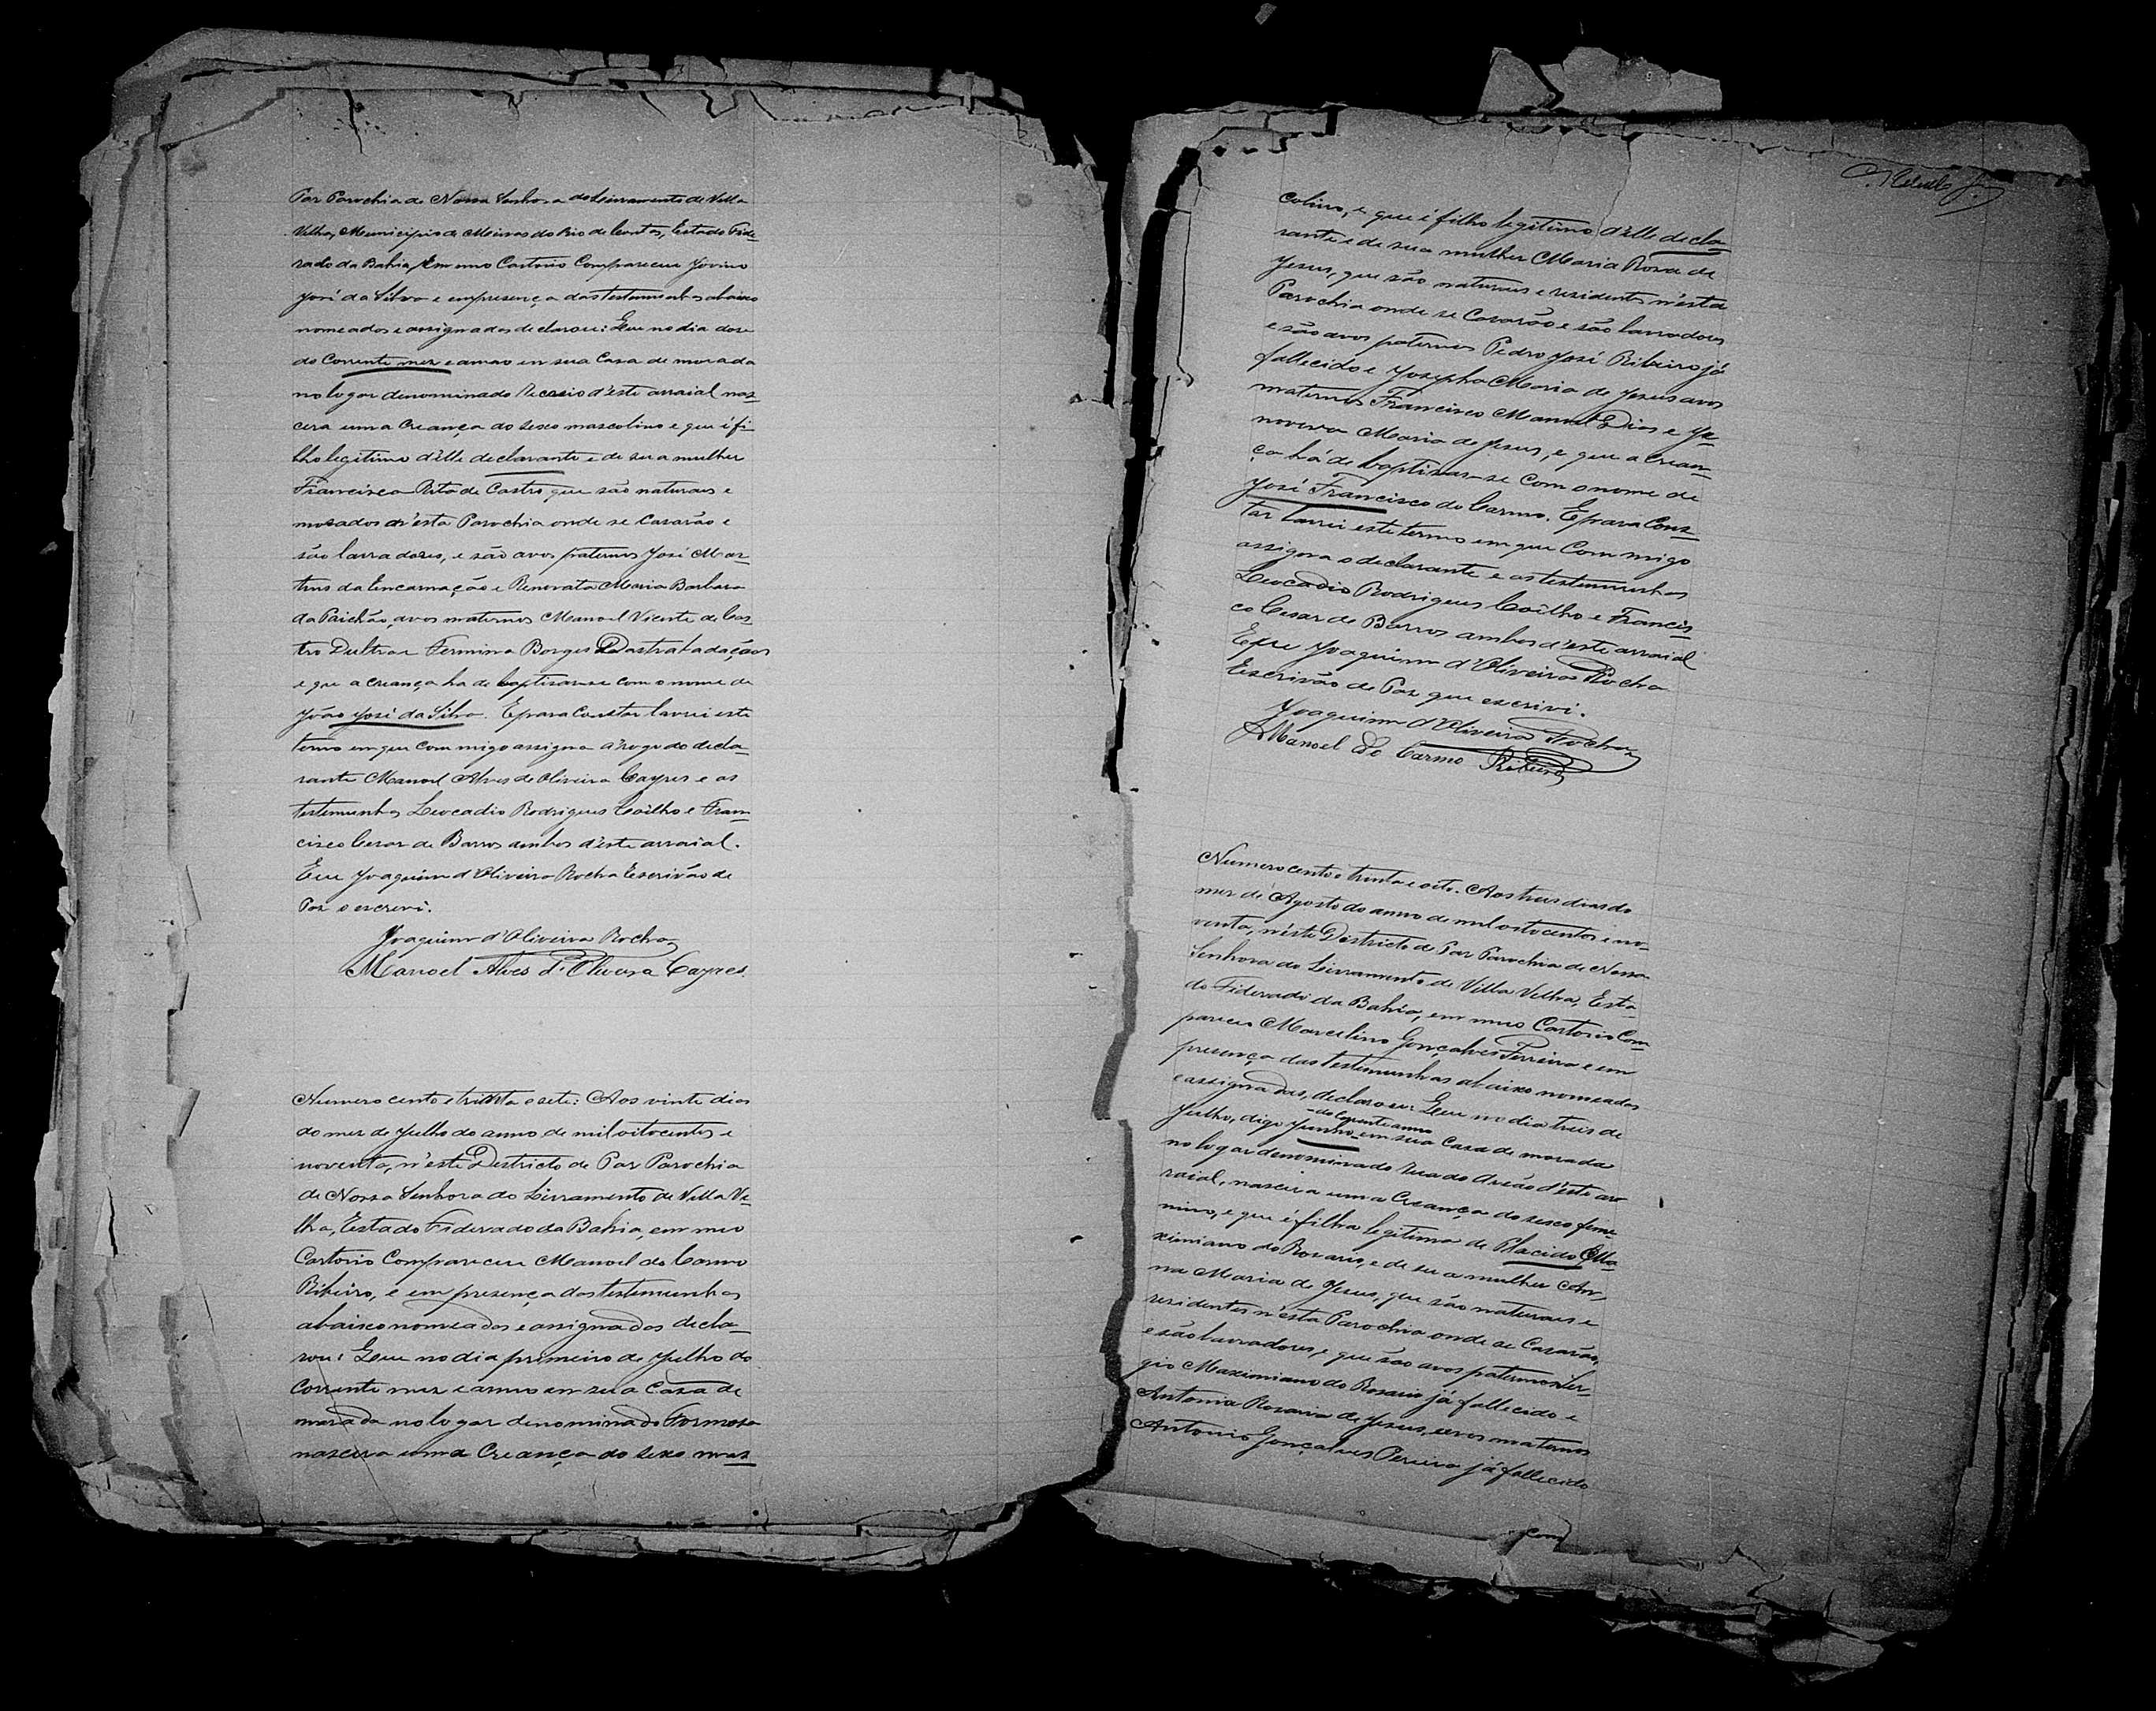 Paz Parochia de Nossa Senhora do Livramento de Villa
Velha, Municipio de Minas do Rio de Contas, Estado Fide-
rado da Bahia, em meu Cartorio Compareceu Jovino
José da Silva e em presença das testemunhas abaixo
nomeados e assignados declarou: Que no dia doze
do Corrente mez e anno em sua Casa de morada
no logar denominado d'este arraial nas-
cera uma Creança do sexo mascolino e que é fi-
lho legitimo d'elle declarante e de sua mulher
Francisca Rita de Castro, que são naturaes e
morados n'esta Parochia onde se Casarão e
são lavradores, e são avos paternos José Mar-
tins da Encarnação e Renovata Maria Barbara
da Paichão, avos maternos Manoel Vicente de Cas-
tro Dultra e Fermina Borges
e que a creança ha de baptisar-se com o nome de
João José da Silva. E para Constar lavrei este
termo em que com migo assigna a rogo do decla-
rante Manoel Alves de Oliveira Cayres e as
testemunhas Leocadio Rodrigues Coêlho e Fran-
cisco Cesar de Barros ambos d'este arraial.
Eu Joaquim d'Oliveira Rocha Escrivão de
Paz o escrevi.
Joaquim d'Oliveira Rocha
Manoel Alves d'Oliveira Cayres
Numero cento e trinta e sete: Aos vinte dias
do mez de Julho do anno de mil oitocentos e
noventa, n'este Destricto de Paz Parochia
de Nossa Senhora do Livramento de Villa Ve-
lha, Estado Fiderado da Bahia, em meu
Cartorio Compareceu Manoel do Carmo
Ribeiro, e em presença das testemunhas
abaixo nomeados e assignados decla-
rou: Que no dia primeiro de Julho do
Corrente mez e anno em sua Casa de
morada no logar denominado Formosa
nascera uma Creança do sexo mas-
colino, e que é filho legitimo d'elle decla-
rante e de sua mulher Maria Rosa de
Jesus, que são naturaes e residentes n'esta
Parochia onde se Casarão e são lavradores
e são avos paternos Pedro José Ribeiro já
fallecido e Josepha Maria de Jesus avos
maternos Francisco Manoel Dias e Je-
noveva Maria de Jesus, e que a Crean-
ça há de baptisar-se Com o nome de
José Francisco do Carmo. E para Cons-
tar lavrei este termo em que Com migo
assigna o declarante e as testemunhas
Leocadio Rodrigues Coêlho e Francis-
co Cesar de Barros ambos d'este arraial
Eu Joaquim d'Oliveira Rocha
Escrivão de Paz que escrivi.
Joaquim d'Oliveira Rocha
Manoel do Carmo Ribeiro
Numero cento e trinta e oito. Aos treis dias do
mez de Agosto do anno de mil oitocentos e no-
venta, n'este Destricto de Paz Parochia de Nossa
Senhora do Livramento de Villa Velha, Esta-
do Fiderado da Bahia, em meu Cartorio Com-
pareceu Marcelino Gonçalves Ferreira e em
presença das testemunhas abaixo nomeados
e assignados, declarou: Que no dia treis de
do Corrente anno
Julho, digo Junho em sua Casa de morada
no logar denominado Rua do Areão d'este ar-
raial, nascera uma Creança do sexo feme-
nino, e que é filha legitima de Placido Ma-
ximiano do Rosario, e de sua mulher An-
na Maria de Jesus, que são naturaes e
residentes n'esta Parochia onde se Casarão,
e são lavradores, e que são avos paternos Ser-
gio Maximiano do Rosario já fallecido e
Antonia Rosaria de Jesus, avos maternos
Antonio Gonçalves Pereira já fallecido